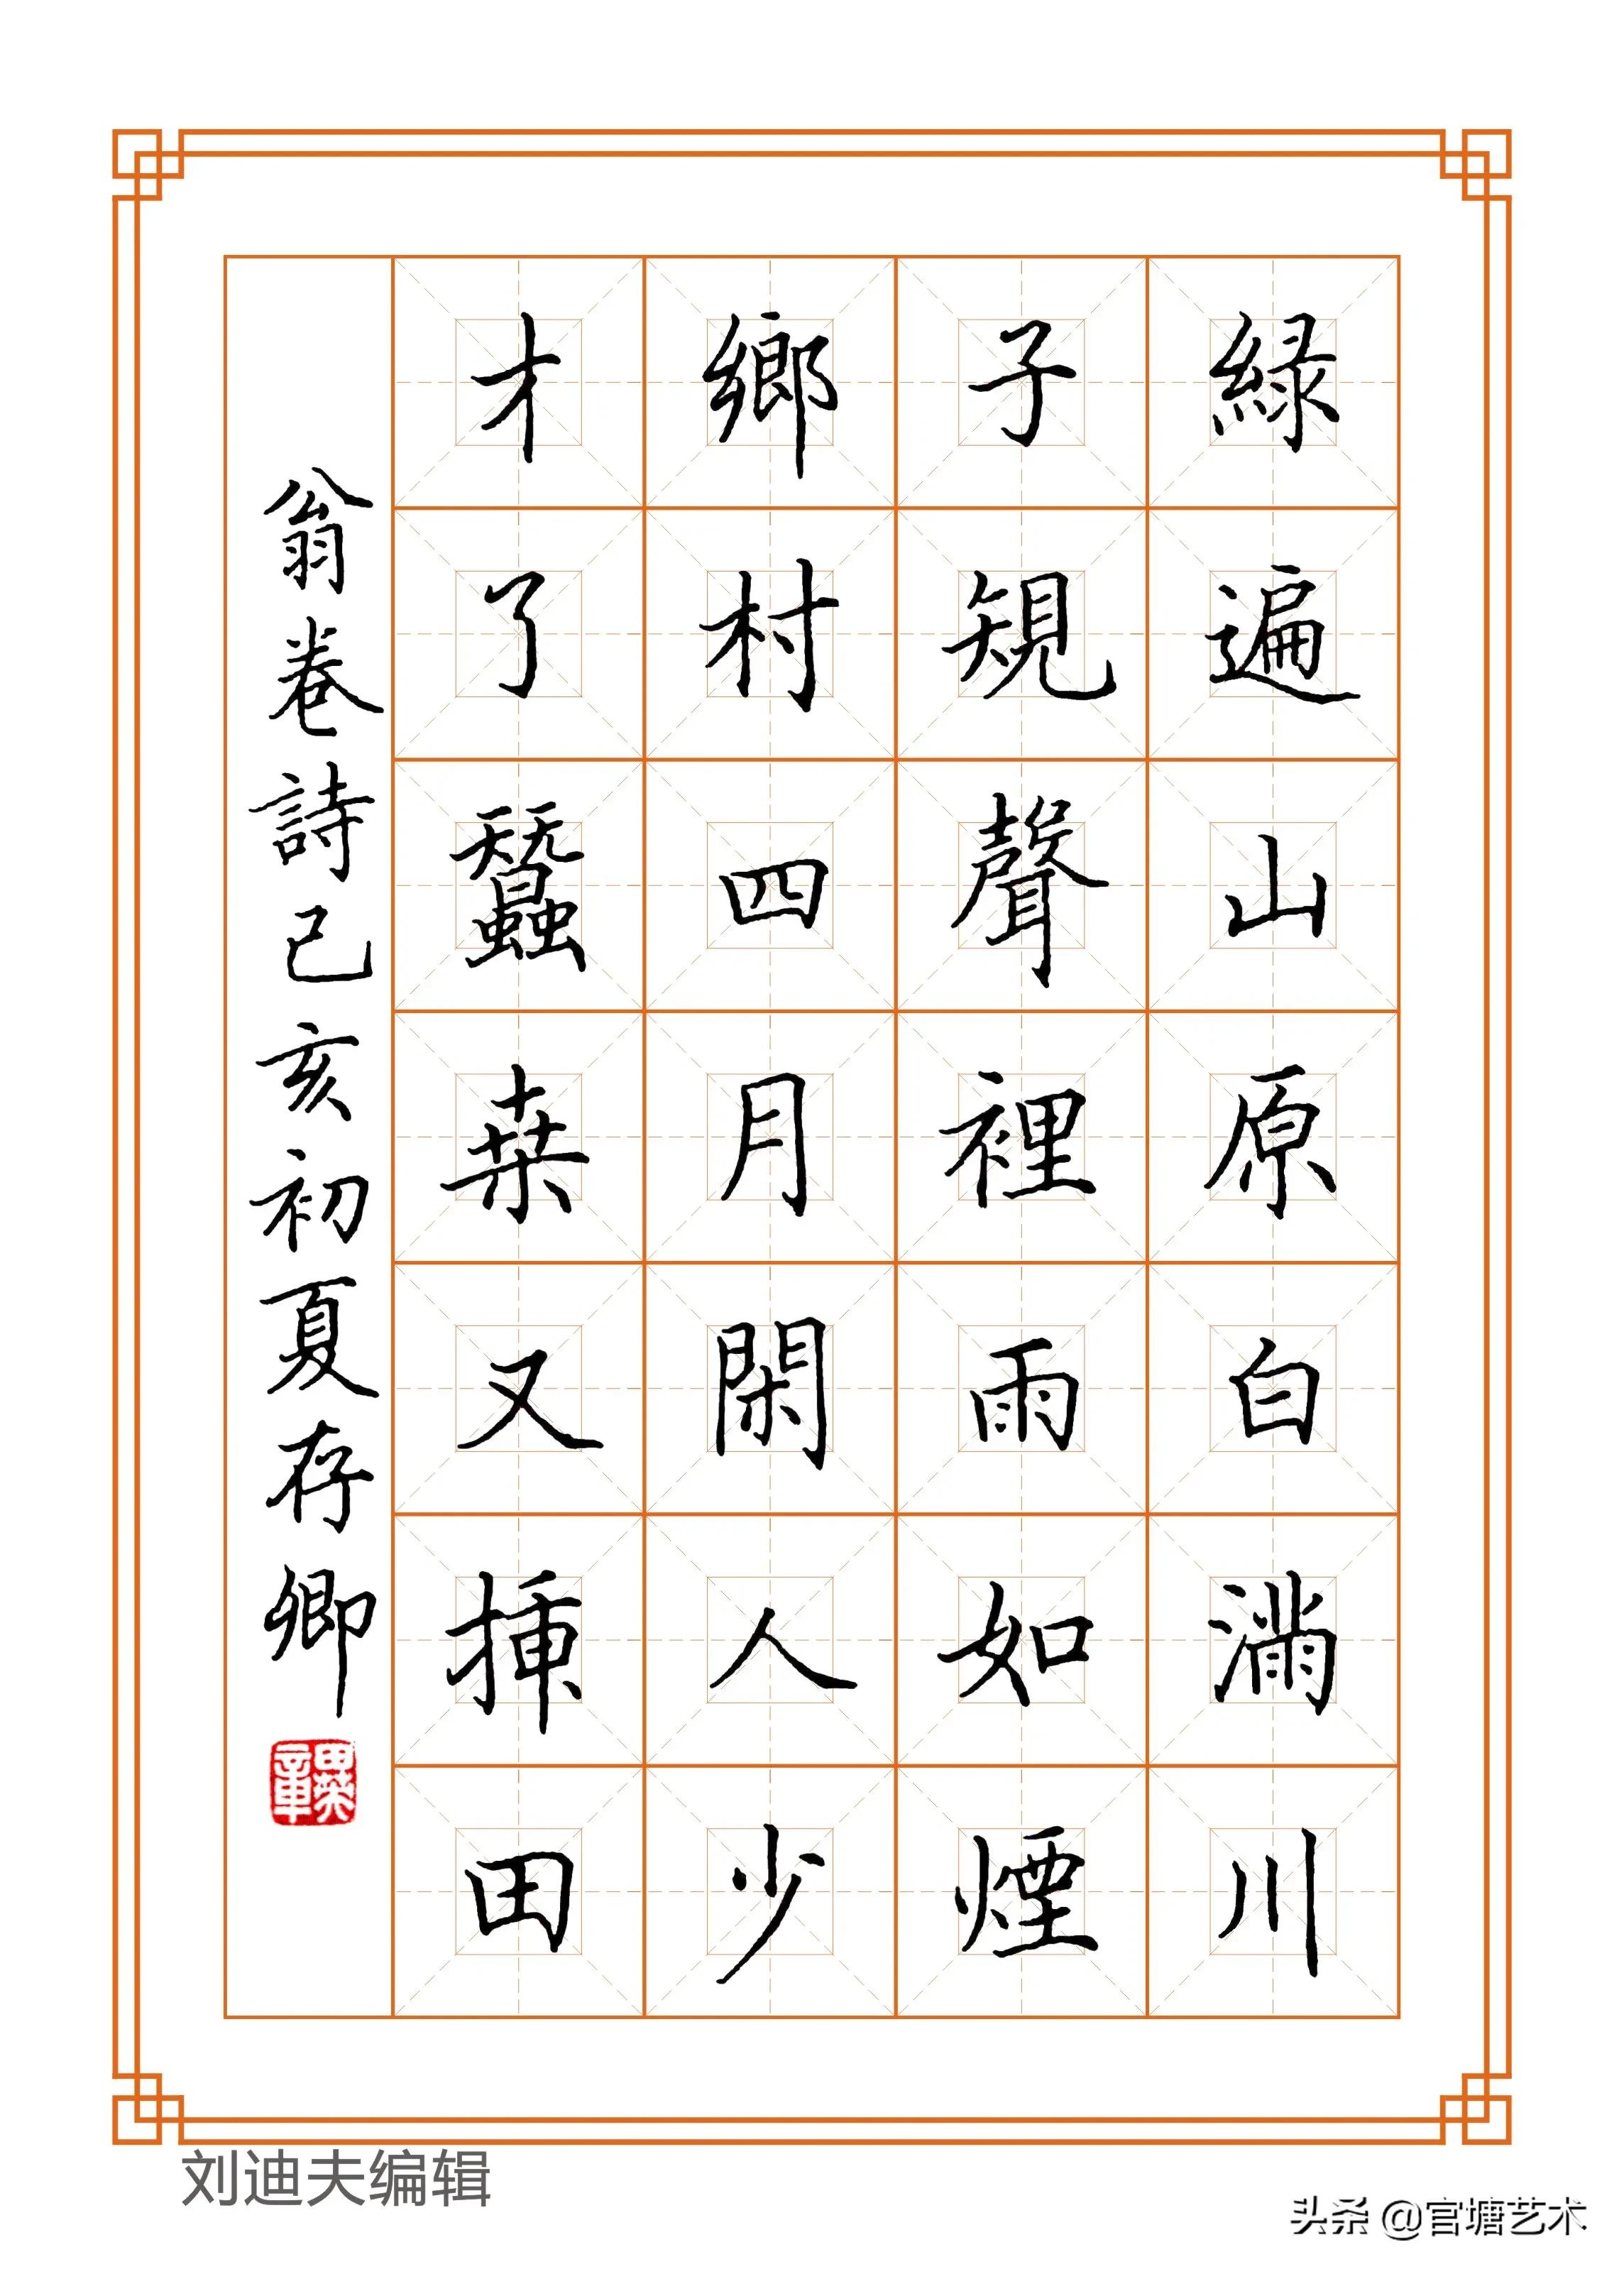 緑遍山原白滿川
子規聲裡雨如煙
鄉村四月閑人少
才了蠶桒又揷田
翁卷詩己亥初夏存卿
刘迪夫编辑
头条 @官塘艺术